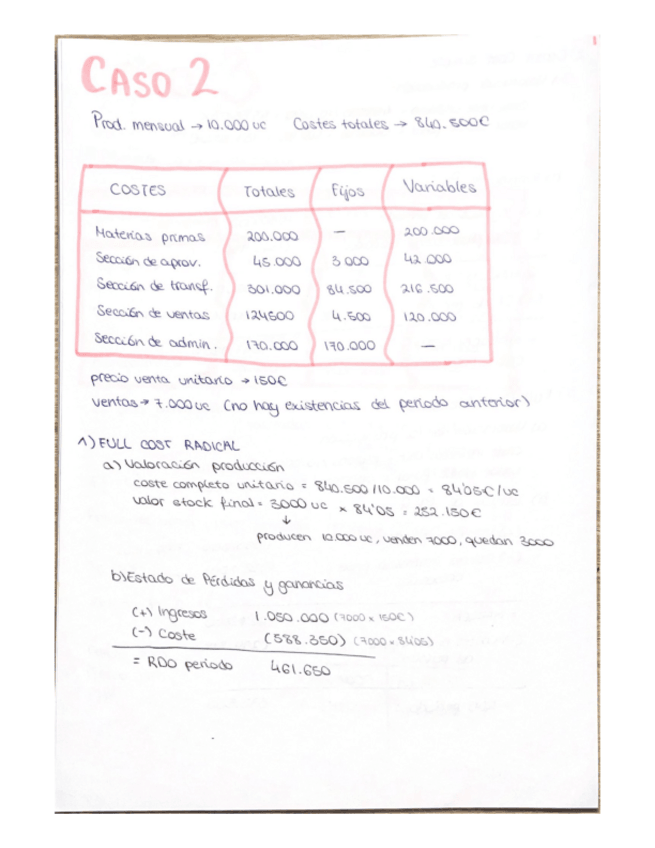 CASO 2
Prod. mensual → 10.000 uc Costes totales → 840.500€
COSTES Totales Fijos Variables
Materias primas 200.000 — 200.000
Sección de aprov. 45.000 3 000 42 000
Sección de transf. 301.000 84.500 216.500
Sección de ventas 124500 4.500 120.000
Sección de admin. 170.000 170.000 —
precio venta unitario → 150€
ventas → 7.000 uc (no hay existencias del período anterior)
1) FULL COST RADICAL
a) Valoración producción
coste completo unitario = 840.500 /10.000 = 84'05€/uc
valor stock final = 3000 uc × 84'05 = 252.150€
↓
producen 10.000 uc, venden 7000, quedan 3000
b) Estado de Pérdidas y ganancias
(+) Ingresos 1.050.000 (7000 × 150€)
(-) Coste (588.350) (7000 × 84'05)
= RDO período 461.650